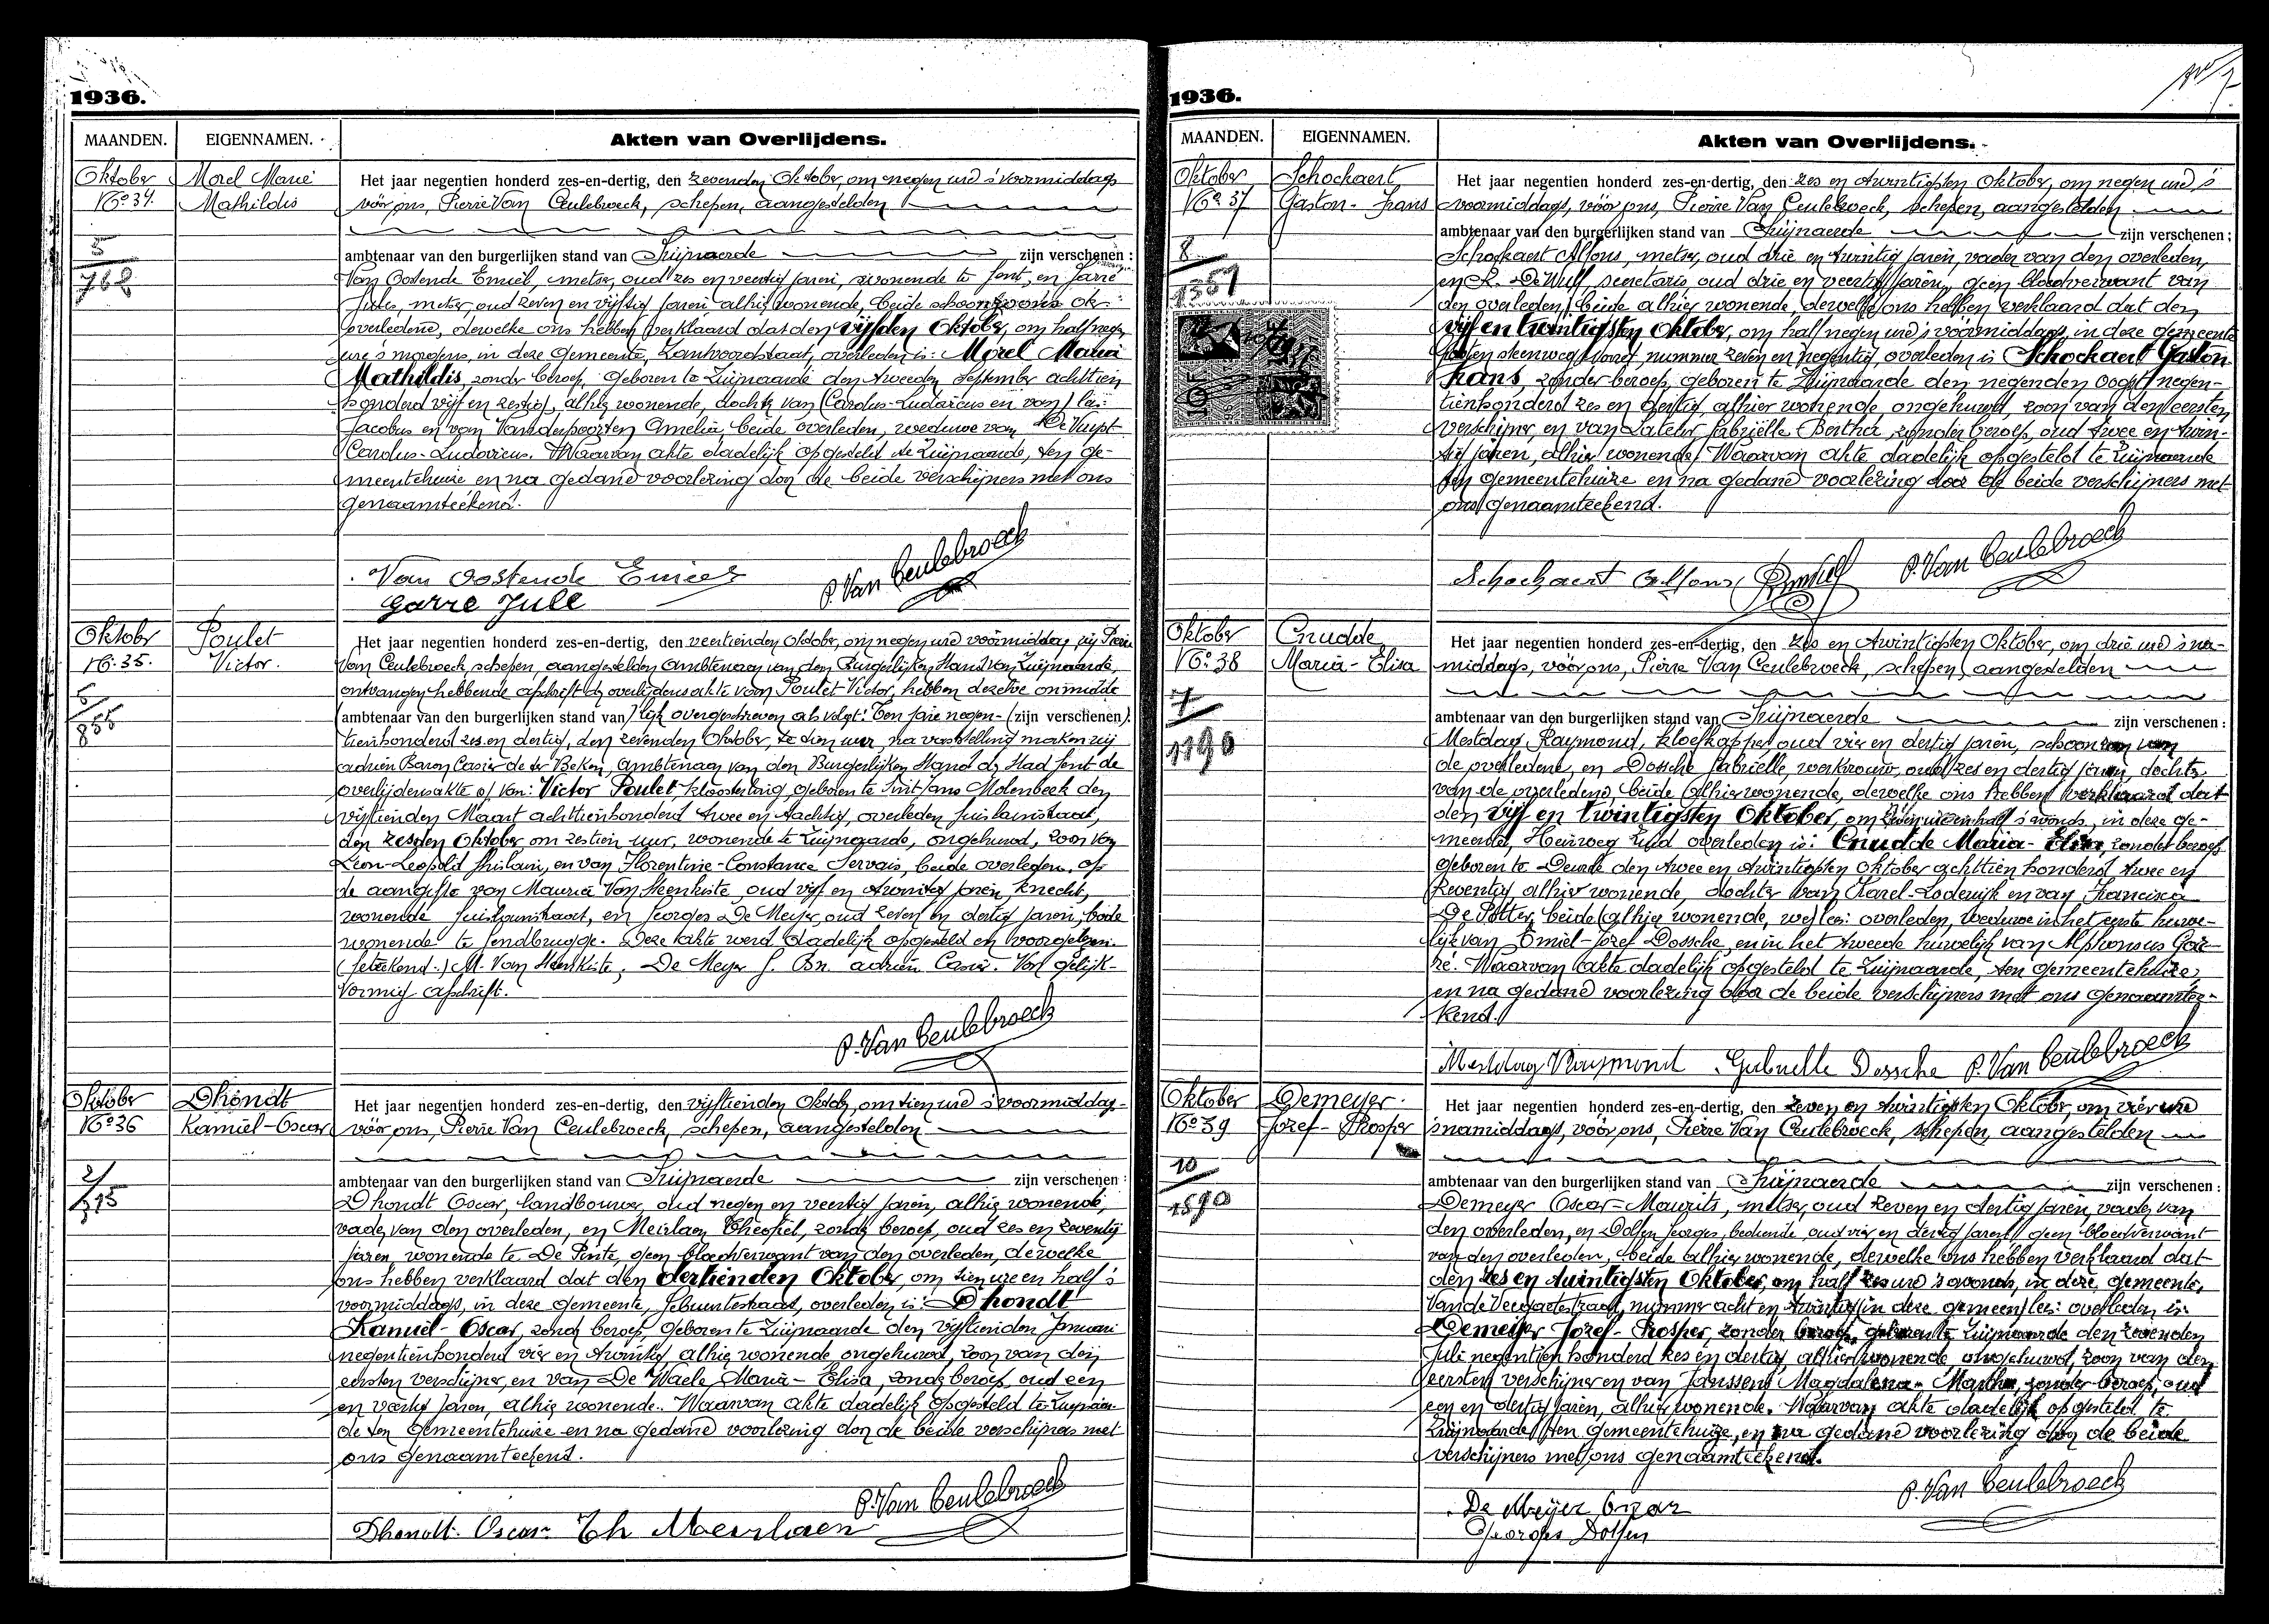 1936.
MAANDEN. EIGENNAMEN. Akten van Overlijdens.
Oktober
No 34.
5
762
Morel Maria
Mathildis
Het jaar negentien honderd zes-en-dertig, den zevenden Oktober, om negen ure 's voormiddags
vóór ons, Pierre Van Ceulebroeck, schepen, aangestelden
ambtenaar van den burgerlijken stand van Zwijnaarde zijn verschenen :
Van Oostende Emiel, metser, oud zes en veertig jaren, wonende te Gent, en Garré
Jules, metser, oud zeven en vijftig jaren, alhier wonende, beide schoonzoons der
overledene, dewelke ons hebben verklaard dat den vijfden Oktober, om half negen
ure 's morgens, in deze gemeente, overleden is: Morel Maria
Mathildis, zonder beroep, geboren te Zwijnaarde den tweeden September achttien
honderd vijf en zestig, alhier wonende, dochter van (Carolus-Ludovicus en van) lees:
Jacobus en van Vanderpoorten Amelia, beide overleden, weduwe van De Vuyst
Carolus-Ludovicus. Waarvan akte dadelijk opgesteld te Zwijnaarde, ten ge-
meentehuize en na gedane voorlezing door de beide verschijners met ons
genaamteekend.
Van Oostende Emiel
Garre Jule
P. Van Ceulebroeck
Oktober
No. 35.
5
855
Poulet
Victor.
Het jaar negentien honderd zes-en-dertig, den veertienden Oktober, om negen ure voormiddag, wij Pierre
Van Ceulebroeck schepen, aangestelden ambtenaar van den Burgerlijken Stand van Zwijnaarde,
ontvangen hebbende afschrift der overlijdensakte van Poulet Victor, hebben dezelve onmidde
(ambtenaar van den burgerlijken stand van) lijk overgeschreven als volgt: Ten jare negen- (zijn verschenen).
tienhonderd zes en dertig, den zevenden Oktober, te tien uur, na vaststelling maken wij
Adrien Baron Casier de ter Beken, Ambtenaar van den Burgerlijken Stand der Stad Gent de
overlijdensakte op van: Victor Poulet, kloosterling, geboren te Sint Jans Molenbeek den
vijftienden Maart achttienhonderd twee en tachtig, overleden
den zesden Oktober om zestien uur, wonende te Zwijnaarde, ongehuwd, zoon van
Léon-Leopold Ghislain, en van Florentine-Constance Servais, beide overleden. Op
de aangifte van Maurice Van Steenkiste, oud vijf en twintig jaren, knecht,
wonende en Georges De Meyer, oud zeven en dertig jaren,
wonende te Gendbrugge. Deze akte werd dadelijk opgesteld en voorgelezen.
(Geteekend:) M. Van Steenkiste, De Meyer G. Bn. Adrien Casier. Voor gelijk-
vormig afschrift.
P. Van Ceulebroeck
Oktober
No 36
2
Dhondt
Kamiel-Oscar
Het jaar negentien honderd zes-en-dertig, den vijftienden Oktober, om tien ure 's voormiddag-
vóór ons, Pierre Van Ceulebroeck, schepen, aangestelden
ambtenaar van den burgerlijken stand van Zwijnaarde zijn verschenen :
Dhondt Oscar, landbouwer, oud negen en veertig jaren, alhier wonende,
vader van den overleden, en Meirlaen Theophiel, zonder beroep, oud zes en zeventig
jaren, wonende te De Pinte, geen bloedverwant van den overleden, dewelke
ons hebben verklaard dat den dertienden Oktober, om tien ure en half 's
voormiddags, in deze gemeente, overleden is: Dhondt
Kamiel-Oscar, zonder beroep, geboren te Zwijnaarde den vijftienden Januari
negentienhonderd vier en twintig, alhier wonende ongehuwd, zoon van den
eersten verschijner, en van De Waele Maria-Elisa, zonder beroep, oud een
en veertig jaren, alhier wonende. Waarvan akte dadelijk opgesteld te Zwijnaar-
de ten gemeentehuize en na gedane voorlezing door de beide verschijners met
ons genaamteekend.
Dhondt Oscar Th Meerlaen
P. Van Ceulebroeck
1936.
MAANDEN. EIGENNAMEN. Akten van Overlijdens.
Oktober
No 37
8
1351
Schockaert
Gaston-Frans
Het jaar negentien honderd zes-en-dertig, den zes en twintigsten Oktober, om negen ure 's
voormiddags, vóór ons, Pierre Van Ceulebroeck, schepen, aangestelden
ambtenaar van den burgerlijken stand van Zwijnaarde zijn verschenen :
Schockaert Alfons, metser, oud drie en twintig jaren, vader van den overleden,
en R. De Wulf, secretaris oud drie en veertig jaren, geen bloedverwant van
den overleden, beide alhier wonende, dewelke ons hebben verklaard dat den
vijf en twintigsten Oktober, om half negen ure 's voormiddags, in deze gemeente
nummer zeven en negentig, overleden is Schockaert Gaston-
Frans, zonder beroep, geboren te Zwijnaarde den negenden Oogst negen-
tienhonderd zes en dertig, alhier wonende, ongehuwd, zoon van den eersten
verschijner, en van Gabriëlle-Bertha, zonder beroep, oud twee en twin-
tig jaren, alhier wonende. Waarvan akte dadelijk opgesteld te Zwijnaarde
ten gemeentehuize en na gedane voorlezing door de beide verschijners met
ons genaamteekend.
10F
Schockaert Alfons
P. Van Ceulebroeck
Oktober
No. 38
7
1190
Cnudde
Maria-Elisa
Het jaar negentien honderd zes-en-dertig, den zes en twintigsten Oktober, om drie ure 's na-
middags, vóór ons, Pierre Van Ceulebroeck, schepen, aangestelden
ambtenaar van den burgerlijken stand van Zwijnaarde zijn verschenen :
Mestdag Raymond, kloefkapper oud vier en dertig jaren, schoonzoon van
de overledene, en Dossche Gabriëlle, werkvrouw, oud zes en dertig jaren, dochter
van de overledene, beide alhier wonende, dewelke ons hebben verklaard dat
den vijf en twintigsten Oktober, om zeven ure en half 's avonds, in deze ge-
meente, Heirweg Zuid overleden is: Cnudde Maria-Elisa, zonder beroep
geboren te Deurle den twee en twintigsten Oktober achttien honderd twee en
zeventig alhier wonende, dochter van Karel-Lodewijk en van Francisca
De Potter, beide (alhier wonende, we) lees: overleden, weduwe in het eerste huwe-
lijk van Emiel-Jozef Dossche, en in het tweede huwelijk van Alphonsus Gar-
ré. Waarvan akte dadelijk opgesteld te Zwijnaarde, ten gemeentehuize,
en na gedane voorlezing door de beide verschijners met ons genaamtee-
kend.
Mestdag Raymond Gabrielle Dossche P. Van Ceulebroeck
Oktober
No 39
10
1590
Demeyer
Jozef-Prosper
Het jaar negentien honderd zes-en-dertig, den zeven en twintigsten Oktober, om vier ure
'snamiddags, vóór ons, Pierre Van Ceulebroeck, schepen, aangestelden
ambtenaar van den burgerlijken stand van Zwijnaarde zijn verschenen :
Demeyer Oscar-Maurits, metser, oud zeven en dertig jaren, vader van
den overleden, en Dolfen Georges, bediende, oud vier en dertig jaren, geen bloedverwant
van den overleden, beide alhier wonende, dewelke ons hebben verklaard dat
den zes en twintigsten Oktober, om half zes ure 's avonds, in deze gemeente,
nummer acht en twintig (in deze gemeen) lees: overleden is:
Demeyer Jozef-Prosper, zonder beroep, geboren te Zwijnaarde den zevenden
Juli negentien honderd zes en dertig, alhier wonende, ongehuwd, zoon van den
eersten verschijner en van Janssens Magdalena-Martha, zonder beroep, oud
een en dertig jaren, alhier wonende. Waarvan akte dadelijk opgesteld te
Zwijnaarde, ten gemeentehuize, en na gedane voorlezing door de beide
verschijners met ons genaamteekend.
De Meyer Oscar
Georges Dolfen
P. Van Ceulebroeck